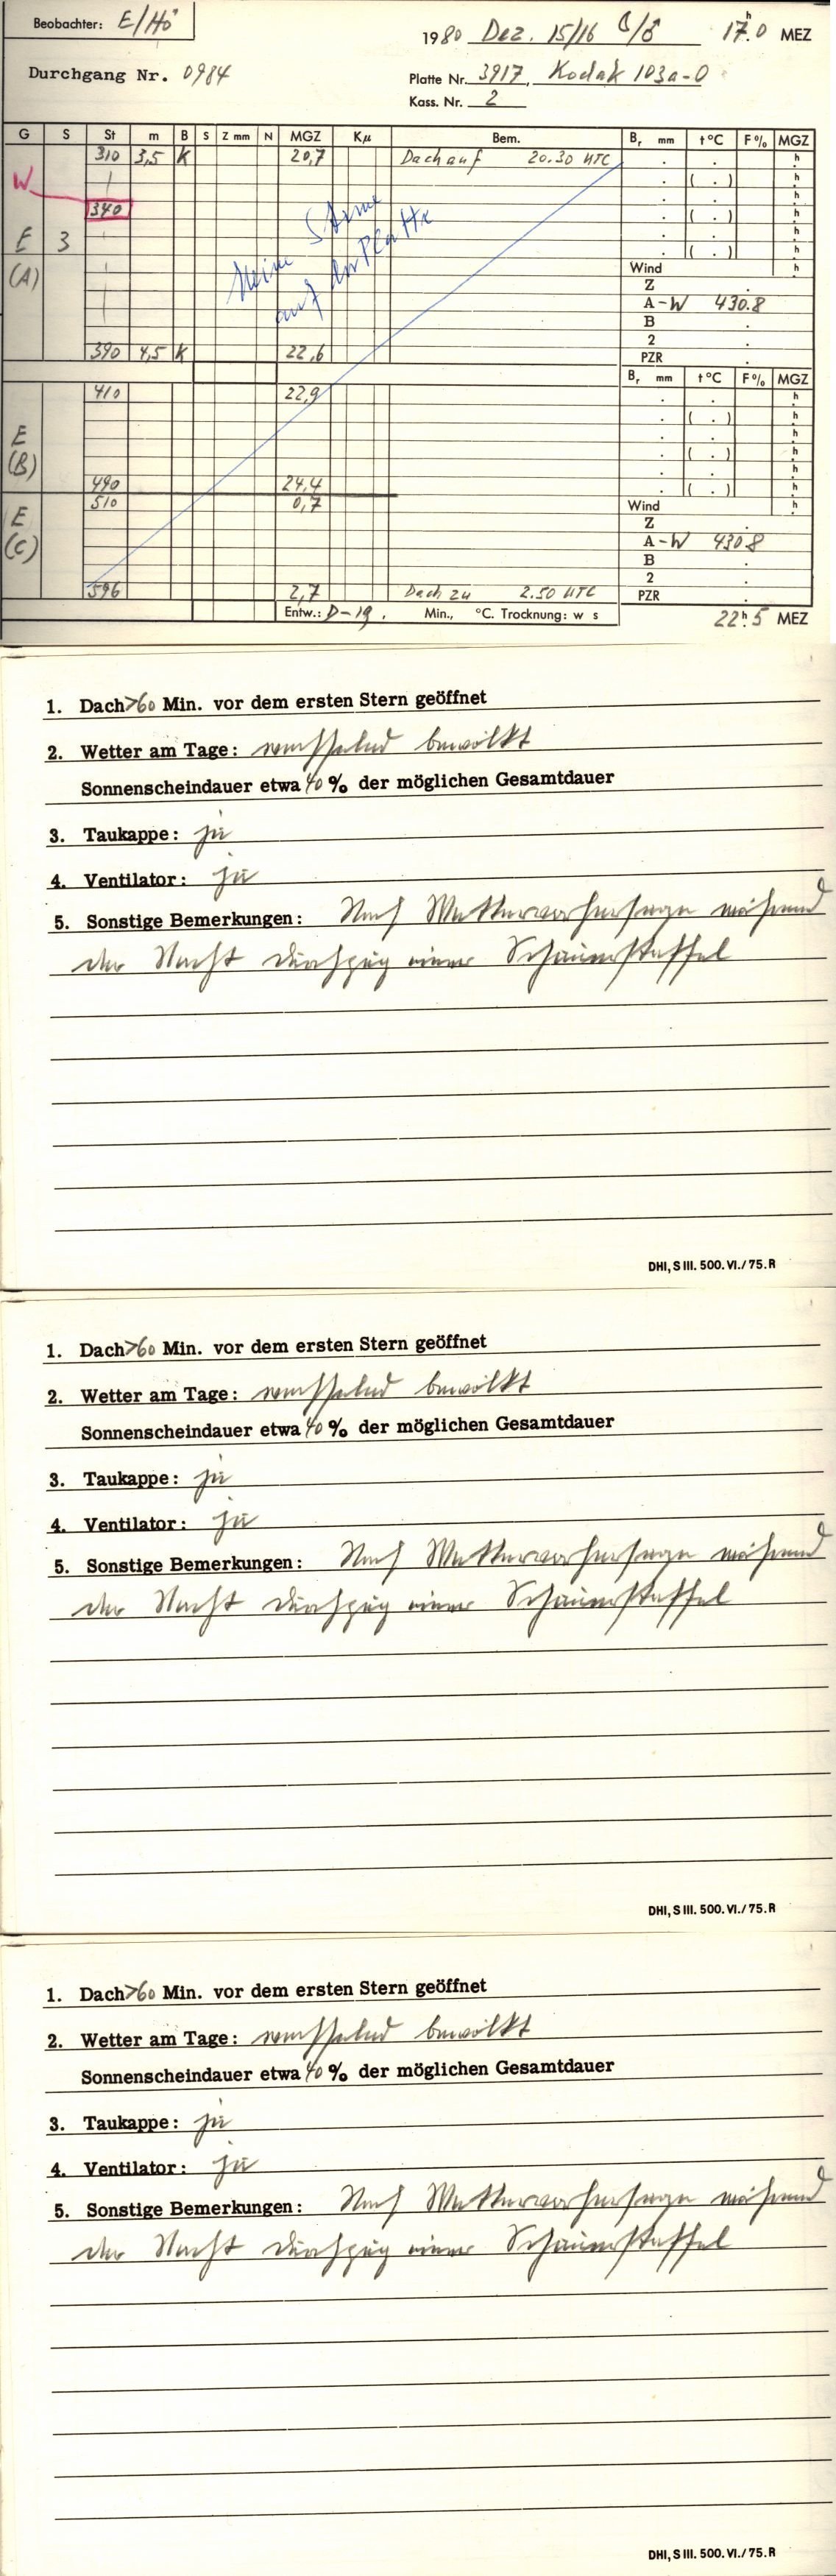 Beobachter: E/Hö
1980 Dez. 15/16 17h.0 MEZ
Durchgang Nr. 0984
Platte Nr. 3917, Kodak 103a-O
Kass. Nr. 2
G S St m B S Z mm N MGZ Kμ Bem. Br mm t°C F% MGZ
310 3,5 K 20,7 Dach auf 20.30 UTC . . h
W ( . ) h
340 ( . ) h
E 3 ( . ) h
(A) Keine Sterne
auf der Platte
Wind h
Z .
A-W 430.8
B .
2 .
390 4,5 K 22,6 PZR .
Br mm t°C F% MGZ
410 22,9 . . h
E ( . ) h
(B) ( . ) h
490 24,4 ( . ) h
510 0,7 Wind h
E Z .
(C) A-W 430.8
B .
2 .
596 2,7 Dach zu 2.50 UTC PZR .
Entw.: D-19. Min., °C. Trocknung: w s 22h.5 MEZ
1. Dach >60 Min. vor dem ersten Stern geöffnet
2. Wetter am Tage: wechselnd bewölkt
Sonnenscheindauer etwa 40 % der möglichen Gesamtdauer
3. Taukappe: ja
4. Ventilator: ja
5. Sonstige Bemerkungen: Nach Wettervorhersage während
der Nacht Durchzug einer Schauerstaffel
DHI, S III. 500. VI./75. R
1. Dach >60 Min. vor dem ersten Stern geöffnet
2. Wetter am Tage: wechselnd bewölkt
Sonnenscheindauer etwa 40 % der möglichen Gesamtdauer
3. Taukappe: ja
4. Ventilator: ja
5. Sonstige Bemerkungen: Nach Wettervorhersage während
der Nacht Durchzug einer Schauerstaffel
DHI, S III. 500. VI./75. R
1. Dach >60 Min. vor dem ersten Stern geöffnet
2. Wetter am Tage: wechselnd bewölkt
Sonnenscheindauer etwa 40 % der möglichen Gesamtdauer
3. Taukappe: ja
4. Ventilator: ja
5. Sonstige Bemerkungen: Nach Wettervorhersage während
der Nacht Durchzug einer Schauerstaffel
DHI, S III. 500. VI./75. R